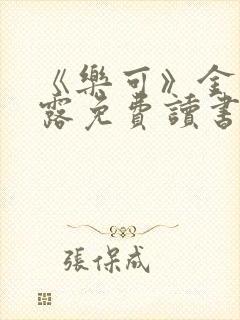 《樂可》金
露免費讀書
張保成